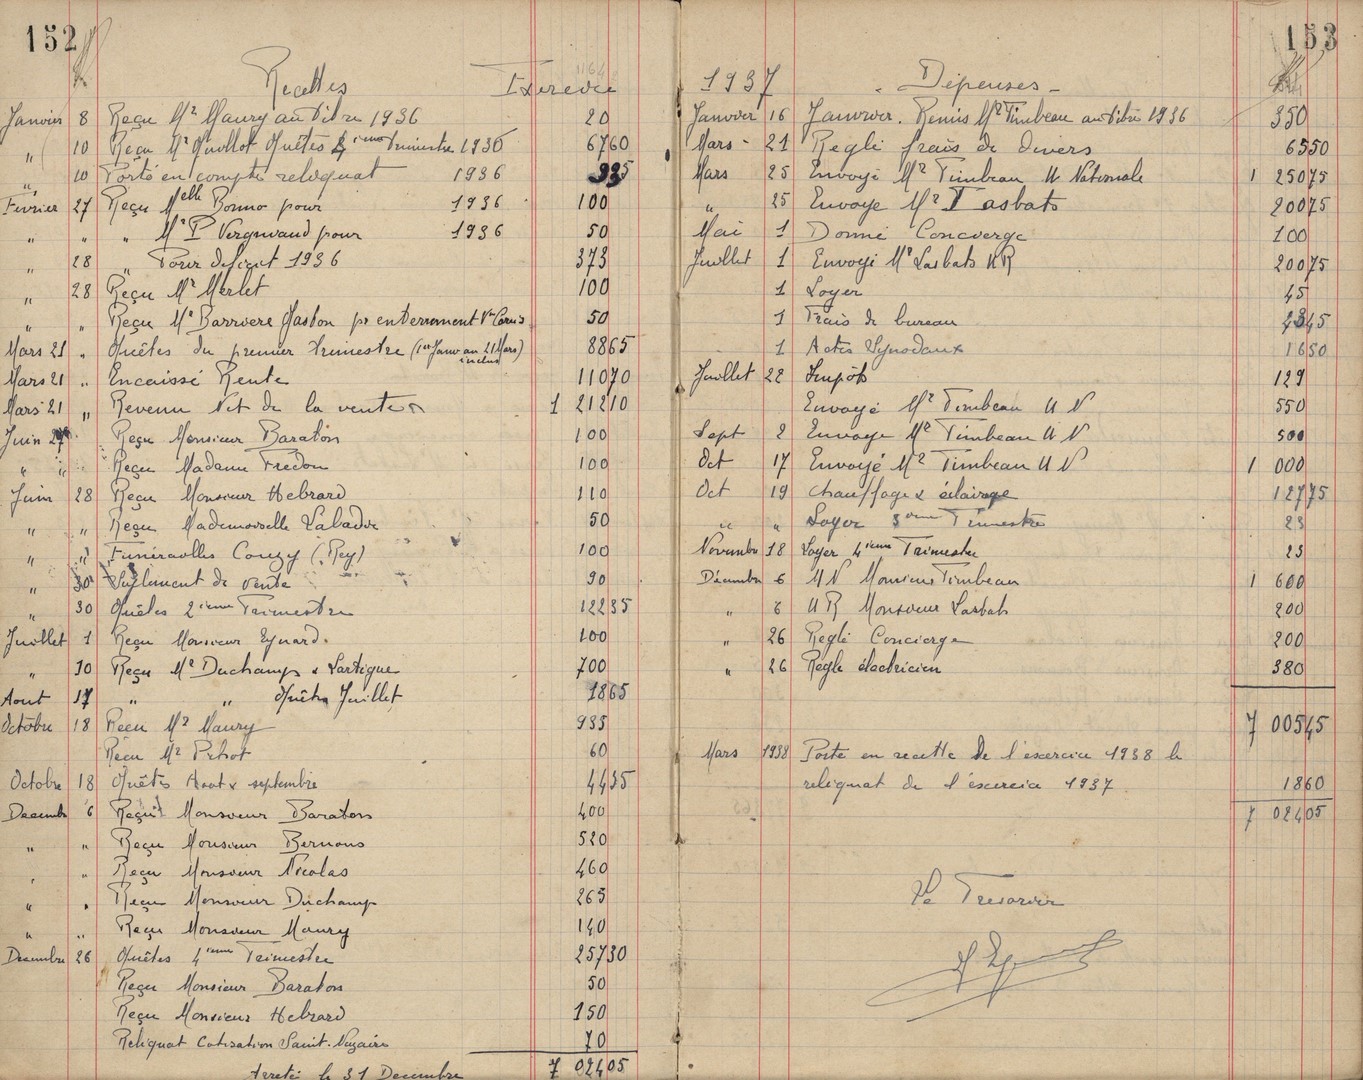 152
Recettes Exercice
Janvier 8 Reçu Mr Maury au titre 1936 20
" 10 Reçu Mr Guillot Quêtes 4ieme Trimestre 1936 6760
" 10 Porté en compte reliquat 1936 935
Fevrier 27 Reçu Melle Bonno pour 1936 100
" " " Mr P Vergnivaud pour 1936 50
" 28 " Pour deficit 1936 373
" 28 Reçu Mr Merlet 100
" " Reçu Mr Barriere Gaston pr enterrement 50
Mars 21 " Quêtes du premier trimestre (1er Janv au 21 Mars) inclus 8865
Mars 21 " Encaissé Rente 11070
Mars 21 " Revenu Net de la vente 1 21210
Juin 27 Reçu Monsieur Baraton 100
" " Reçu Madame Fredon 100
Juin 28 Reçu Monsieur Hebrard 110
" " Reçu Mademoiselle Labadie 50
" " Funérailles Couzy (Rey) 100
" 30 Suplement de vente 90
" 30 Quêtes 2ieme Trimestre 12235
Juillet 1 Reçu Monsieur Eynard. 100
" 10 Reçu Mr Duchamp & Lartigue 700
Aout 17 " " Quêtes Juillet 1865
Octobre 18 Reçu Mr Maury 935
Reçu Mr 60
Octobre 18 Quêtes Aout & septembre 4435
Decembre 6 Reçu Monsieur Baraton 400
" " Reçu Monsieur Bernous 520
" " Reçu Monsieur Nicolas 460
" " Reçu Monsieur Duchamp 265
" " Reçu Monsieur Maury 140
Decembre 26 Quêtes 4ieme Trimestre 25730
Reçu Monsieur Baraton 50
Reçu Monsieur Hebrard 150
Reliquat Cotisation Saint-Nazaire 70
Arrete le 31 Decembre 7 02405
153
1937 Dépenses
Janvier 16 Janvier. Remis Mr Timbeau au titre 1936 350
Mars - 21 Reglé frais de divers 6550
Mars 25 Envoyé Mr Timbeau U Nationale 1 25075
" 25 Envoye Mr Lasbats 20075
Mai 1 Donné Concierge 100
Juillet 1 Envoyé Mr Lasbats UR 20075
1 Loyer 45
1 Frais de bureau 4345
1 Actes Synodaux 1650
Juillet 22 Impôts 129
Envoyé Mr Timbeau U N 550
Sept 2 Envoye Mr Timbeau U N 500
Oct 17 Envoyé Mr Timbeau U N 1 000
Oct 19 Chauffage & éclairage 12775
" " Loyer 3eme Trimestre 23
Novembre 18 Loyer 4ieme Trimestre 23
Décembre 6 U N Monsieur Timbeau 1 600
" 6 U R Monsieur Lasbats 200
" 26 Reglé Concierge 200
" 26 Regle électricien 380
7 00545
Mars 1938 Porte en recette de l'exercice 1938 le
reliquat de l'éxercice 1937 1860
7 02405
Le Tresorier